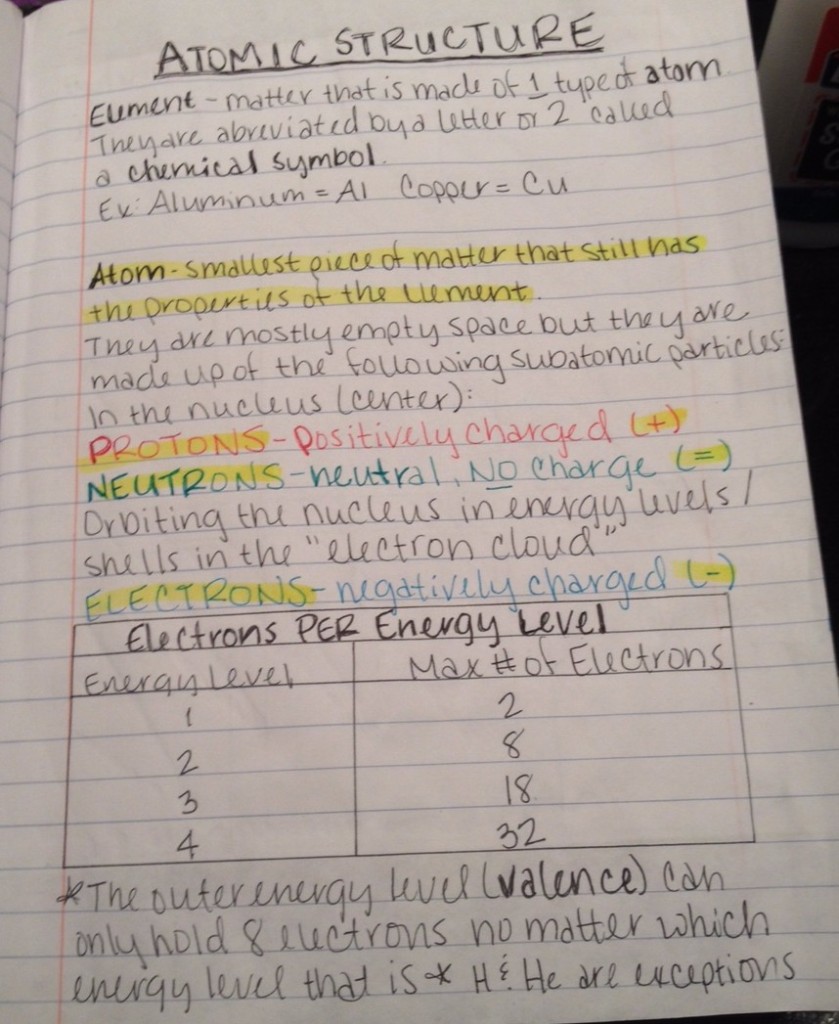 ATOMIC STRUCTURE
Element - matter that is made of 1 type of atom.
They are abreviated by a letter or 2 called
a chemical symbol.
Ex: Aluminum = Al Copper = Cu
Atom - smallest piece of matter that still has
the properties of the element.
They are mostly empty space but they are
made up of the following subatomic particles:
In the nucleus (center):
PROTONS - Positively charged (+)
NEUTRONS - neutral, NO charge (=)
Orbiting the nucleus in energy levels/
shells in the "electron cloud"
ELECTRONS - negatively charged (-)
Electrons PER Energy Level
Energy Level Max # of Electrons
1 2
2 8
3 18
4 32
*The outer energy level (valence) can
only hold 8 electrons no matter which
energy level that is * H & He are exceptions